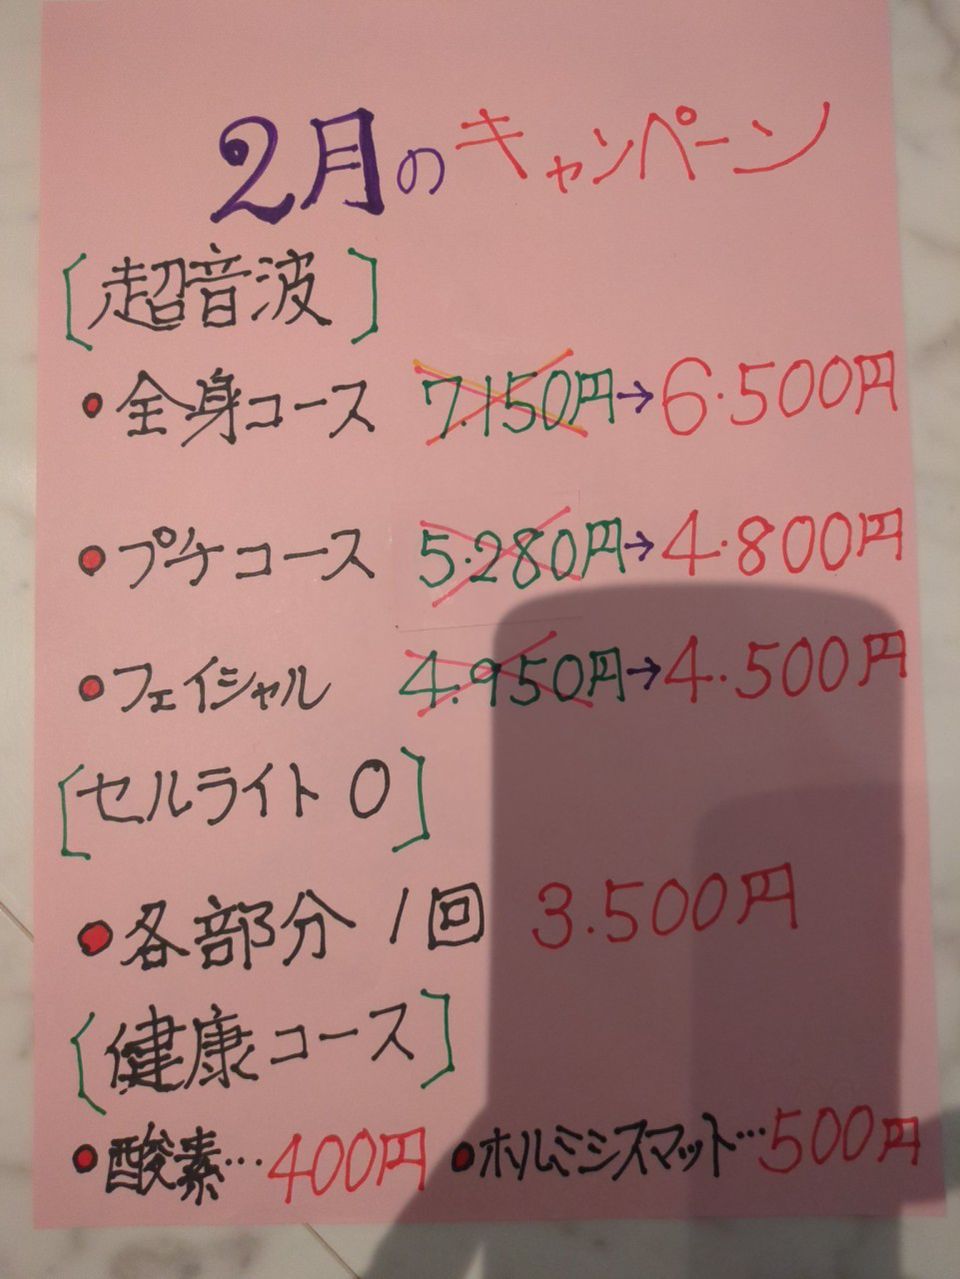 2月のキャンペーン
[超音波]
●全身コース 7.150円→6.500円
●プチコース 5.280円→4.800円
●フェイシャル 4.950円→4.500円
[セルライト0]
●各部分 1回 3.500円
[健康コース]
●酸素…400円 ●ホルミシスマット…500円